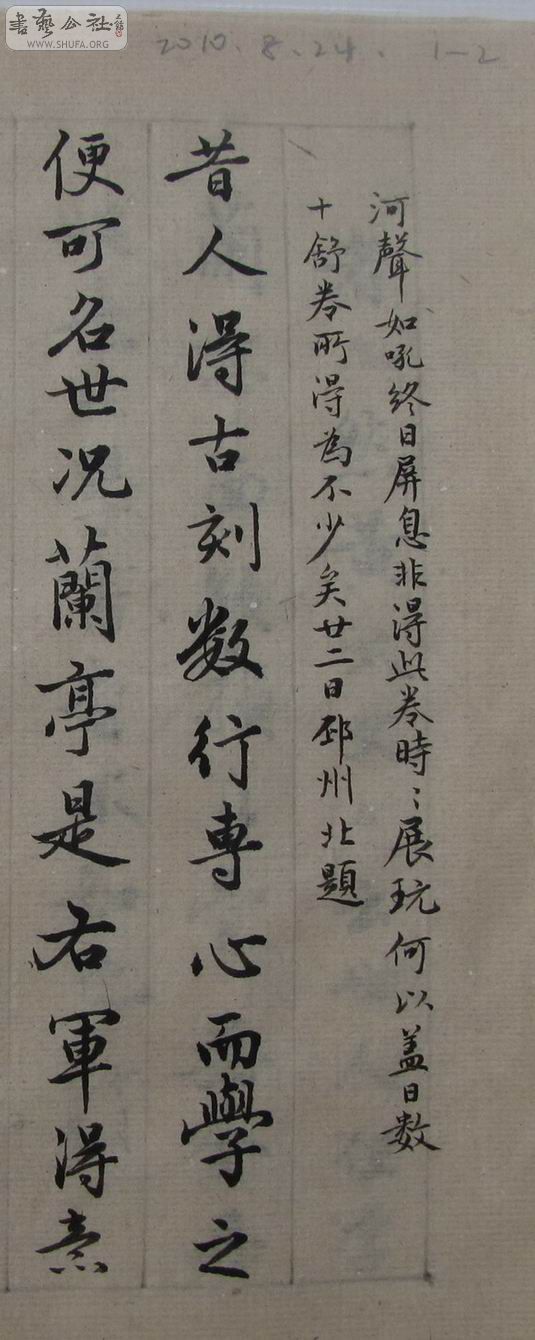 書藝公社
WWW.SHUFA.ORG
2010.8.24. 1-2
河聲如吼終日屏息非得此卷時〻展玩何以盖日数
十舒卷所得為不少矣廿二日邳州北題
昔人得古刻数行專心而學之
便可名世况蘭亭是右軍得意